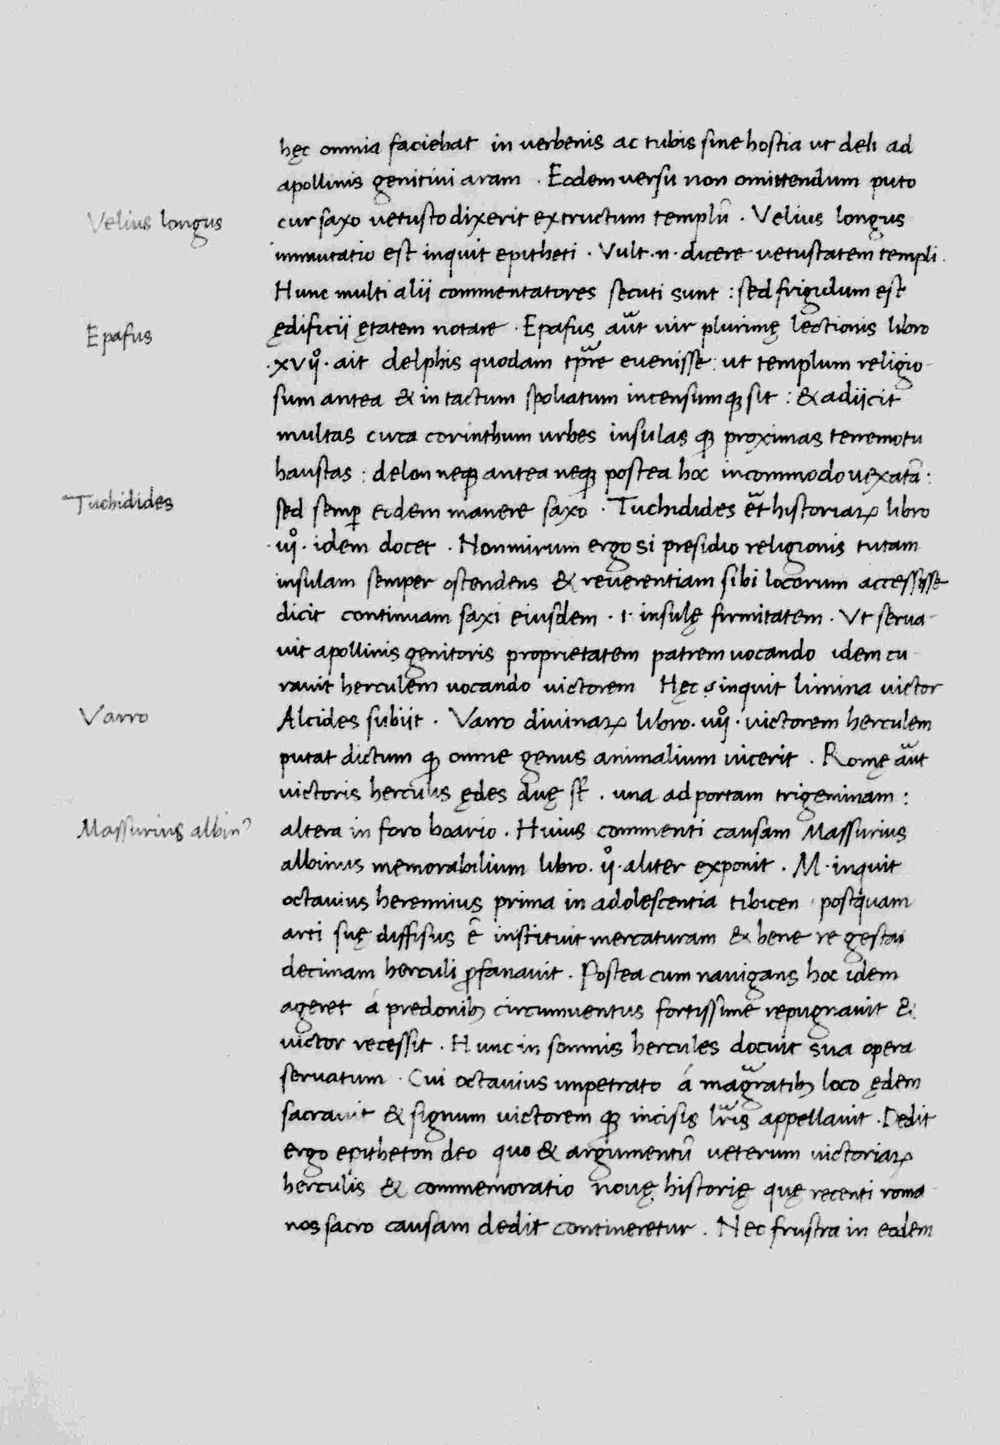 hęc omnia faciebat in verbenis ac tubis sine hostia ut deli ad
apollinis genitiui aram . Eodem versu non omittendum puto
Velius longus
cur saxo vetusto dixerit extructum templū . Velius longus
immutatio est inquit epitheti . Vult .n. dicere vetustatem templi .
Hunc multi alii commentatores secuti sunt : sed frigidum est
Epafus
ędificii ętatem notare . Epafus aūt uir plurimę lectionis libro
.xvijº. ait delphis quodam tp̄re evenisse : ut templum religio-
sum antea & in tactum spoliatum incensumqꝫ sit : & adijcit
multas circa corinthum urbes insulas qꝫ proximas terremotu
haustas : delon neqꝫ antea neqꝫ postea hoc incommodo uexatā :
Tuchidides
sed semꝑ eodem manere saxo . Tuchidides ēt historiaꝝ libro
.iijº. idem docet . Non mirum ergo si presidio religionis tutam
insulam semper ostendens & reverentiam sibi locorum accessisse
dicit continuam saxi eiusdem . i. insulę firmitatem . Ut serua-
uit apollinis genitoris proprietatem patrem uocando idem cu-
rauit herculem uocando victorem Hęc inquit limina victor
Varro
Alcides subiit . Varro divinaꝝ libro . iiijº. victorem herculem
putat dictum qꝫ omne genus animalium vicerit . Romę aūt
victoris herculis ędes duę st̄ . una ad portam trigeminam :
Massurius albinꝰ
altera in foro boario . Huius commenti causam Massurius
albinus memorabilium libro . ijº. aliter exponit . M. inquit
octavius herennius prima in adolescentia tibicen postquam
arti suę diffisus ē instituit mercaturam & bene re gesta
decimam herculi ꝓfanauit . Postea cum navigans hoc idem
ageret á predonibꝫ circumventus fortissime repugnavit &
victor recessit . Hunc in somnis hercules docuit sua opera
servatum . Cui octavius impetrato á magr̄atibꝫ loco ędem
sacravit & signum victorem qꝫ incisis lr̄is appellavit . Dedit
ergo epitheton deo quo & argumentū veterum victoriaꝝ
herculis & commemoratio novę historię quę recenti roma-
no sacro causam dedit contineretur . Nec frustra in eodem